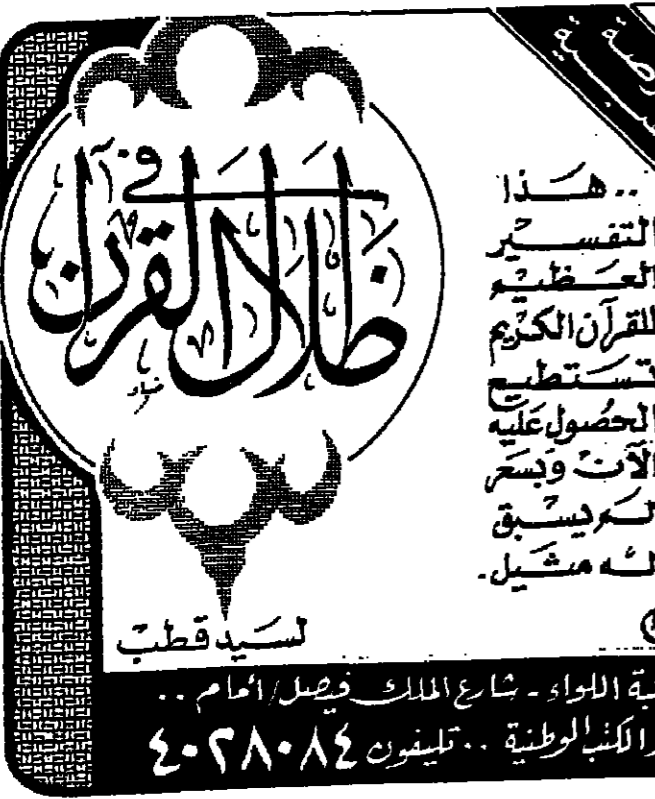 في
ظلال القرآن
ضياء
.. هذا
التفسير
العظيم
للقرآن الكريم
تستطيع
الحصول عليه
الآن وبسعر
لم يسبق
له مثيل.
لسيد قطب
اللواء - شارع الملك فيصل / أمام ..
الكتب الوطنية .. تليفون ٤٠٢٨٠٨٤